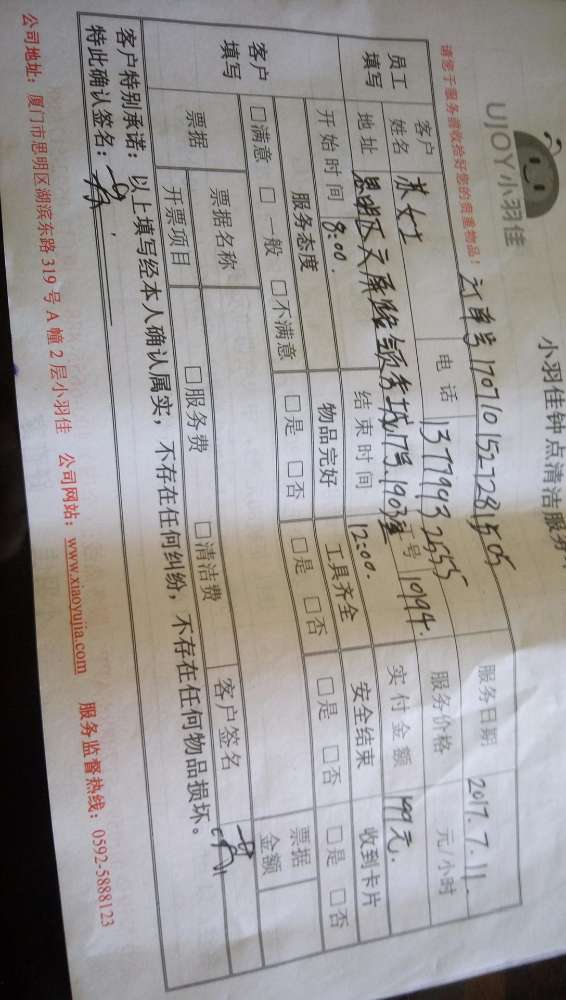 小羽佳钟点清洁服务
UJOY小羽佳
请您于服务前收拾好您的贵重物品！
订单号1707101527281505
员工填写 客户姓名 苏女士 电话 13779932555 服务日期 2017.7.11.
地址 思明区 工号 10194. 服务价格 元/小时
开始时间 8:00. 结束时间 12:00. 实付金额 199元.
客户填写 服务态度 物品完好 工具齐全 安全结束 收到卡片
□满意 □一般 □不满意 □是 □否 □是 □否 □是 □否 □是 □否
票据 票据名称 客户签名 票据金额
开票项目 □服务费 □清洁费
客户特别承诺：以上填写经本人确认属实，不存在任何纠纷，不存在任何物品损坏。
特此确认签名：
公司地址：厦门市思明区湖滨东路 319 号 A 幢 2 层小羽佳 公司网站：www.xiaoyujia.com 服务监督热线：0592-5888123